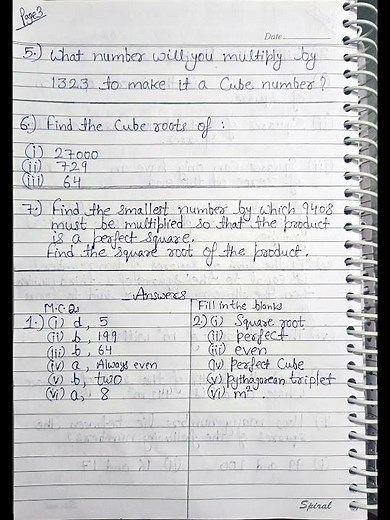 Page 3
Date
5.) What number will you multiply by
1323 to make it a Cube number?
6.) Find the Cube roots of :
(i) 27000
(ii) 729
(iii) 64
7.) Find the smallest number by which 9408
must be multiplied so that the product
is a perfect square.
Find the square root of the product.
Answers
M.C.Qs
1.) (i) d, 5
(ii) b, 199
(iii) b, 64
(iv) a, Always even
(v) b, two
(vi) a, 8
Fill in the blanks
2.) (i) Square root
(ii) perfect
(iii) even
(iv) perfect Cube
(v) pythagorean triplet
(vi) m².
Spiral